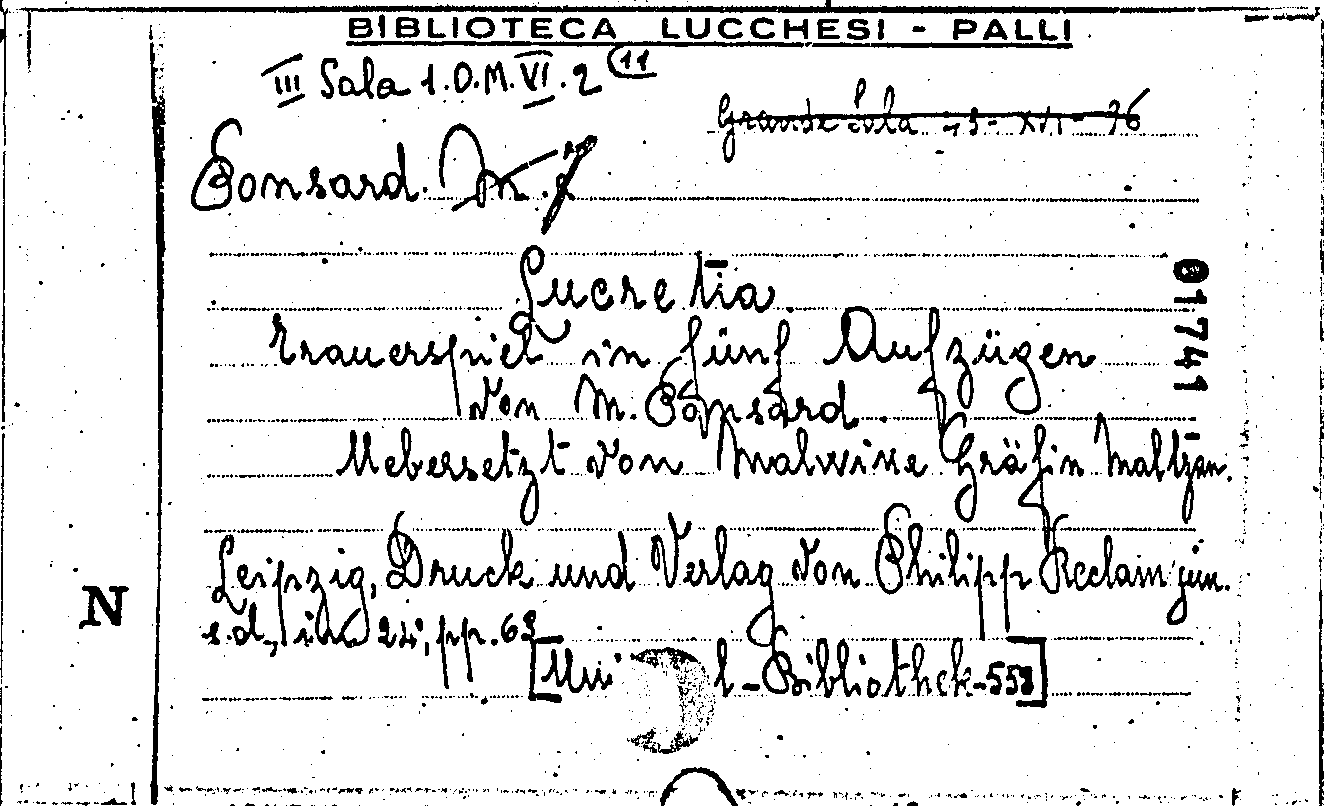 BIBLIOTECA LUCCHESI - PALLI
III Sala 1.O.M.VI.2 (11
Grande Sala
Ponsard. M.
Lucretia.
Trauerspiel in fünf Aufzügen
von M. Ponsard.
01741
Uebersetzt von Malwine Gräfin Maltzan.
Leipzig, Druck und Verlag von Philipp Reclam jun.
s.d., in 24°, pp. 63
N
[Uni l-Bibliothek-558]